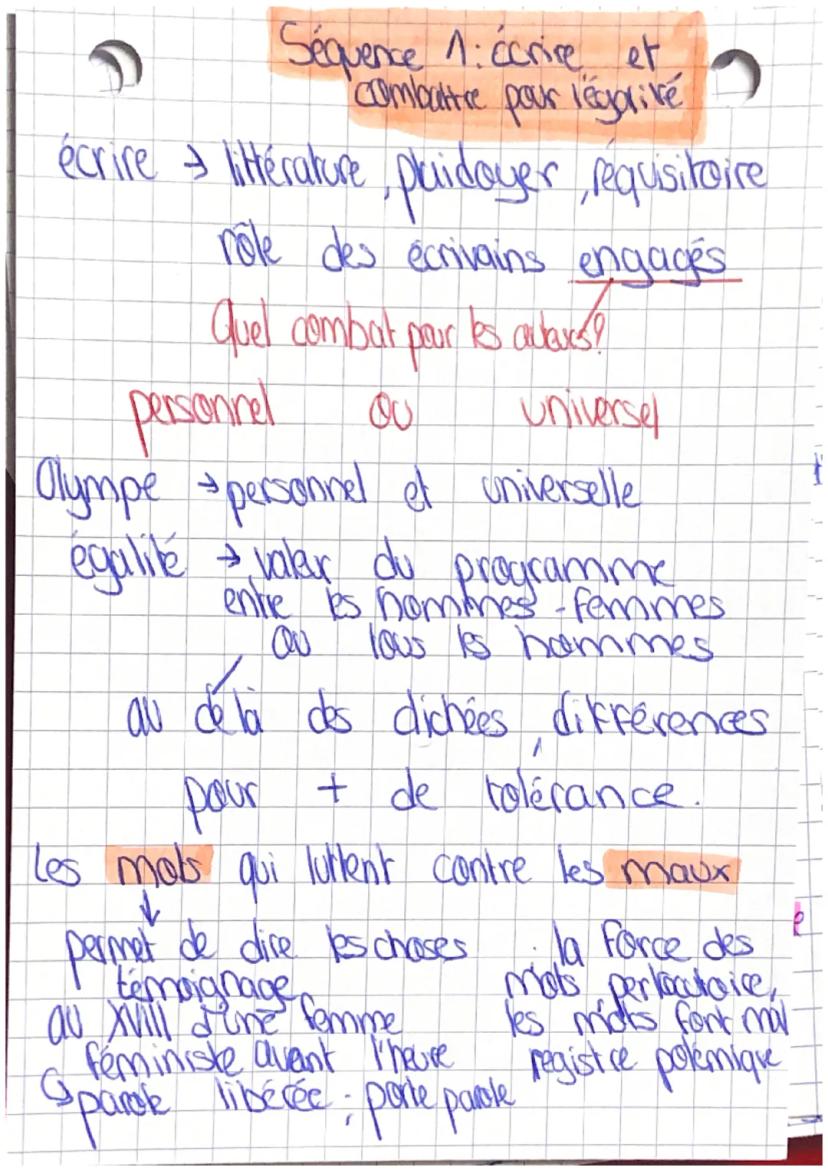 Séquence 1 : écrire et
combattre pour l'égalité
écrire → littérature, plaidoyer, réquisitoire
rôle des écrivains engagés
Quel combat pour les auteurs?
personnel ou universel
Olympe → personnel et universelle
égalité → valeur du programme
entre les hommes - femmes
ou tous les hommes
au délà des clichées, différences
pour + de tolérance.
Les mots qui luttent contre les maux
↓
permet de dire les choses
témoignage
au XVIII d'une femme
féministe avant l'heure
↳ parole libérée ; porte parole
. la force des
mots perlocutoire,
les mots font mal
registre polémique